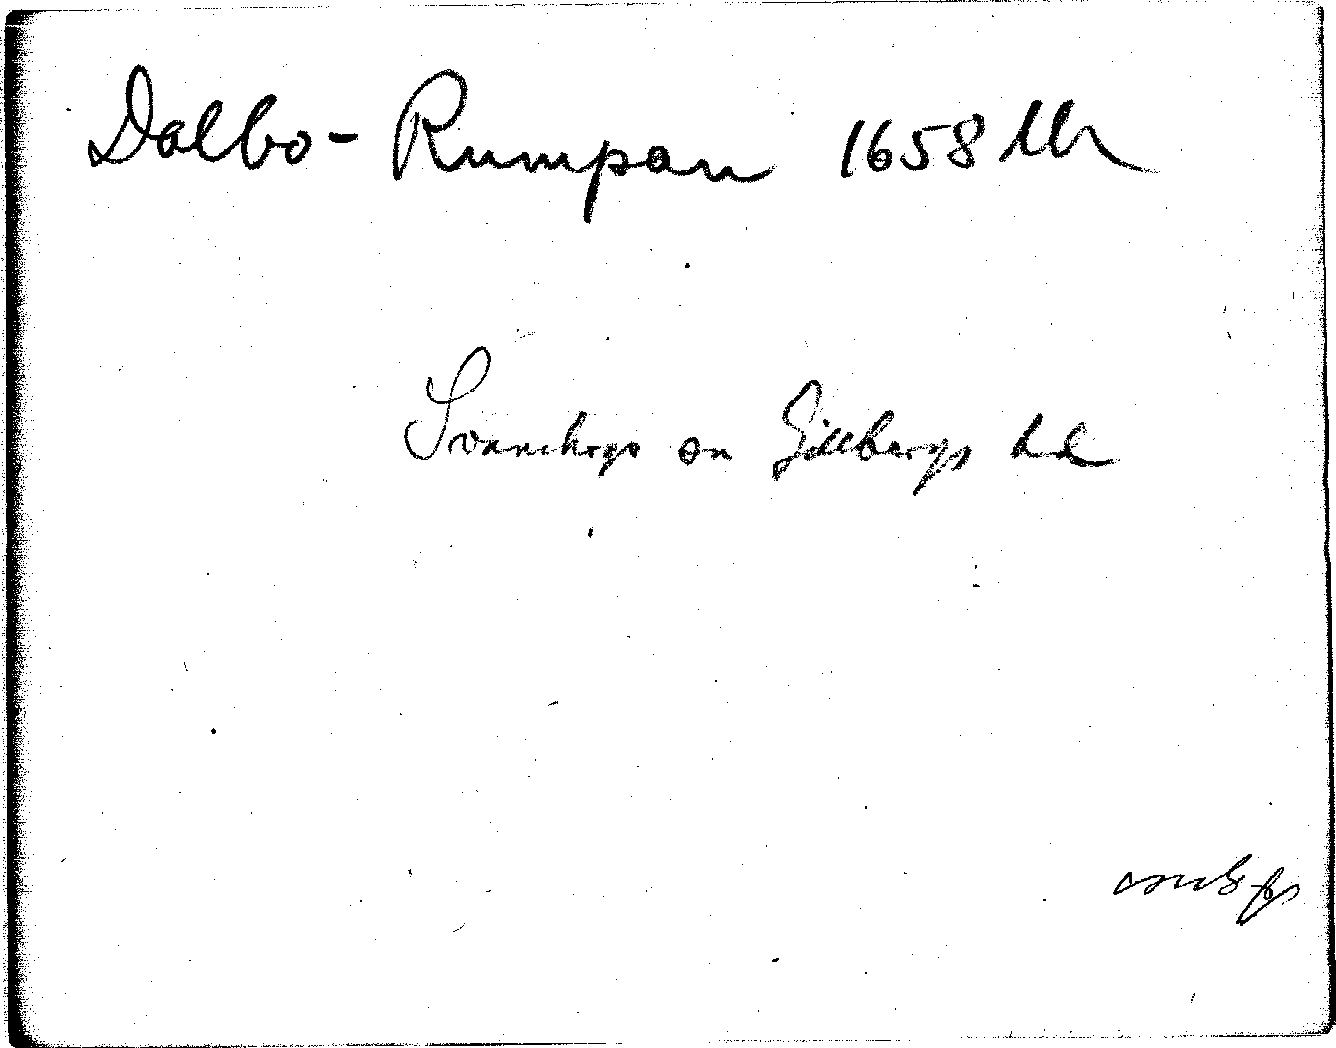 Dalbo-Rumpan 1658 Mr
Svanskogs sn Gillbergs hd